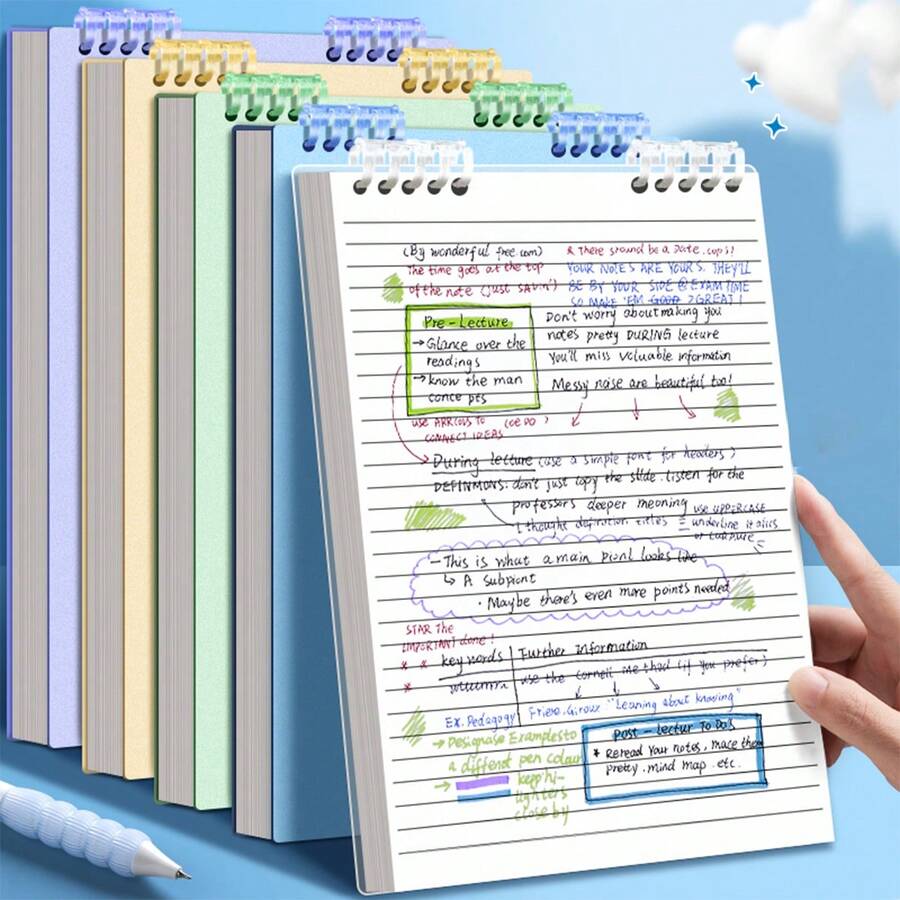 (By wonderful free.com)
The time goes at the top
of the note (just savin')
& There sround be a Date .cops!
YOUR NOTES ARE YOURS. THEY'LL
BE BY YOUR SIDE @ EXAM TIME
SO MAKE 'EM GOOD GREAT!
Pre-Lecture
→Glance over the
readings
→know the man
conce pts
Don't worry about making you
notes pretty DURING lecture
You'll miss valuable information
Messy naise are beautiful too!
USE ARROWS TO
CONNECT IDEAS
During lecture (use a simple font for headers)
DEFINMONS: don't just copy the slide . listen for the
professors deeper meoning
thought definition titles
use UPPERCASE
underline itaiics
or
—This is what a main Pionl looks like
↳ A subpiont
· Maybe there's even more points needed
STAR The
IMPORTANT done!
* *
*
key words
Further Information
use the corneii me thod (if you prefer)
Ex. Pedagogy
Friere.Giroux: "Leaning about knowing"
→ Designase Examplesto
a differet pen colour
→ kepp hi-
lighters
close by
post - lectur To Do's
* Reread Your notes, mace them
pretty . mind map . etc.